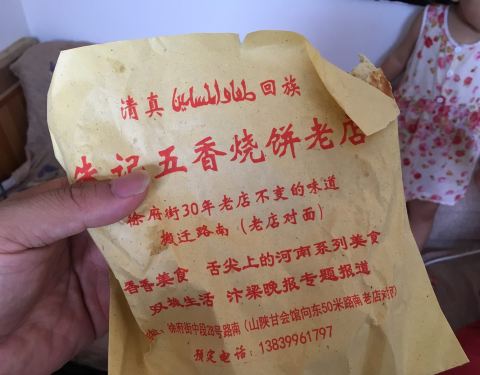 清真 طعام المسلمين 回族
朱记五香烧饼老店
徐府街30年老店不变的味道
搬迁路南（老店对面）
香香美食 舌尖上的河南系列美食
双拼生活 汴梁晚报专题报道
徐府街中段28号路南（山陕甘会馆向东50米路南老店对面）
预定电话：13839961797